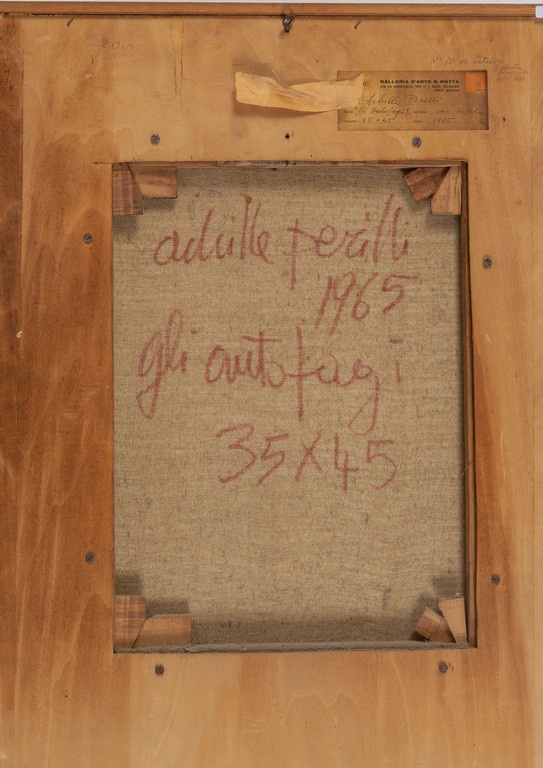 200
GALLERIA D'ARTE R. ROTTA
Achille Perilli
"Gli Autofagi"
35 x 45 1965
achille perilli
1965
gli autofagi
35 X 45